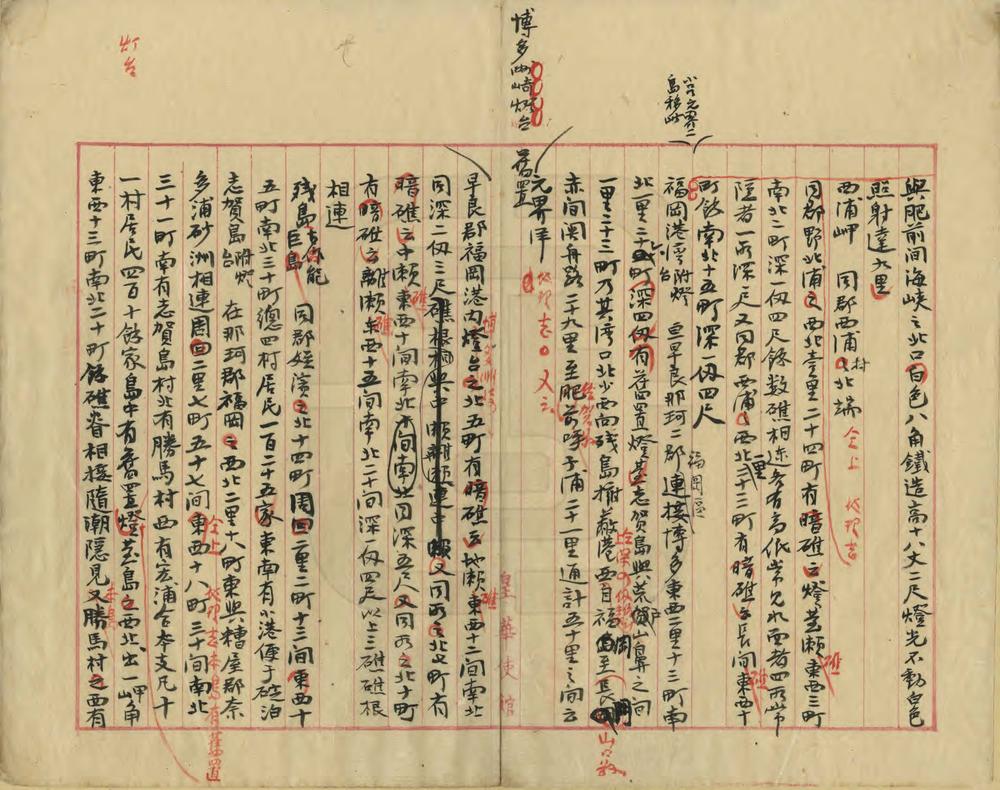 與肥前間海峽之北口白色八角鐵造高十八丈二尺燈光不動白色
照射達九里
西浦岬 同郡西浦村北端
同郡野北浦之西北壹里二十四町有暗礁云燈䑓瀬東西三町
南北二町深一仭四尺餘數礁相連各有高低常見水面者四所常
隱者一所深一尺又同郡西浦西北一里三十三町有暗礁云長間東西十
町餘南北十五町深一仭四尺
福岡港附燈台 亘早良那珂二郡連接博多東西二里十三町南
北一里二十五町深四仭有舊置燈䑓志賀島與荒戶山鼻之間
一里二十三町乃其湾口北少西向残島榭蔽港西自福岡至長門
赤间関舟路二十九里至肥前呼子浦二十一里通計五十里之间云
元界洋
舊置
博多西崎灯台
小呂元界二島移此
早良郡福岡港内燈台之北五町有暗礁云地瀬東西十二间南北
同深二仭三尺礁根相與中瀬連又同所之北七町有
暗礁云中瀬東西十间南北同深五尺又同所之北十町
有暗礁云離瀬東西十五间南北二十间深一仭四尺以上三礁礁根
相連
残島 古作能巨島 同郡姪濱之北十四町周回二里二町十三间東西十
五町南北三十町總四村居民一百二十五家東南有小港便于碇泊
志賀島 附燈台 在那珂郡福岡之西北二里十八町東與糟屋郡奈
多浦砂洲相連周回二里七町五十七间東西十八町三十间南北
三十一町南有志賀島村北有勝馬村西有宏浦合本支凡十
一村居民四百十餘家島中有舊置燈䑓島之西北出一岬角
東西十三町南北二十町餘礁脊相接隨潮隱見又勝馬村之西有
灯台
皇華使館